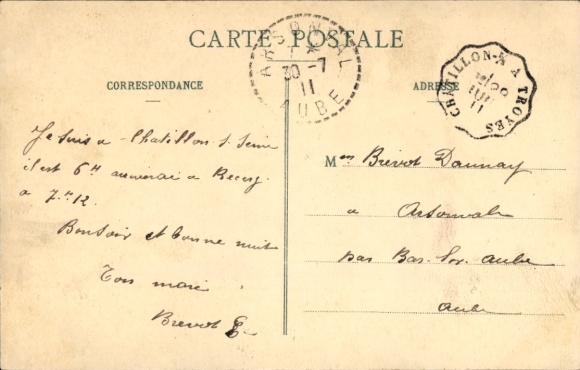 CARTE POSTALE
CORRESPONDANCE
ADRESSE
ARSONVAL
30-7
11
AUBE
CHATILLON-S A TROYES
11
Je suis a Chatillon s. Seine
il est 6H arriverai a
a 7H 12
Bonsoir et bonne nuit
Ton mari
Brevot E
M Brevot Daunay
a Arsonval
par Bar. Sur. Aube
Aube